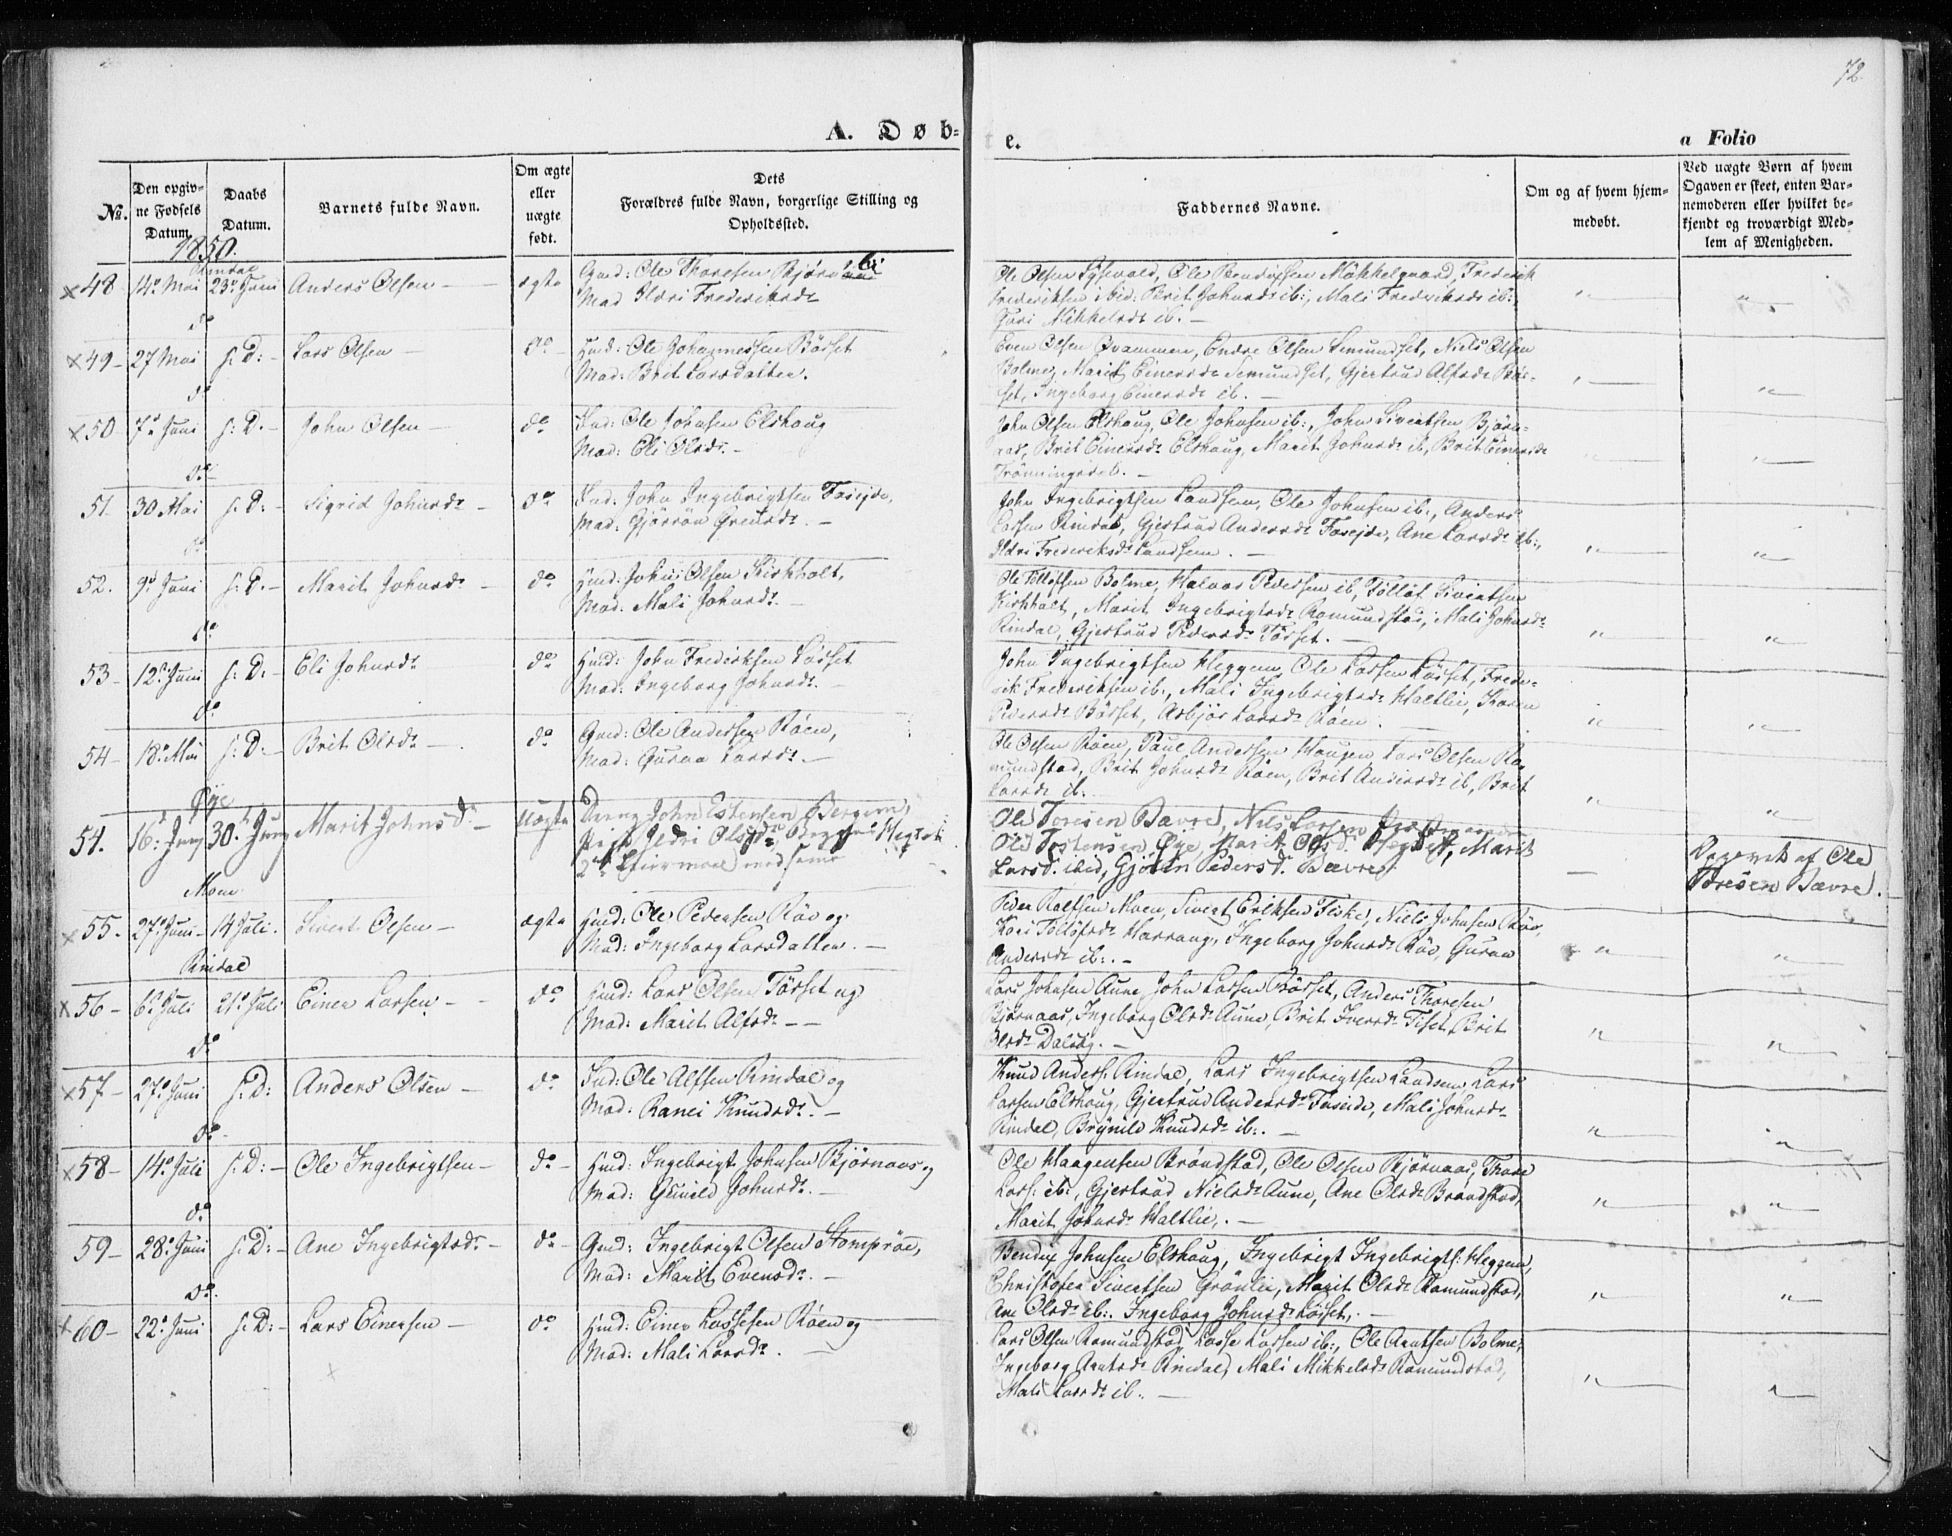 72.
A. Døb-
te.
a Folio
No.
Den opgiv-
ne Fødsels
Datum.
Daabs
Datum.
Barnets fulde Navn.
Om ægte
eller
uægte
født.
Dets
Forældres fulde Navn, borgerlige Stilling og
Opholdssted.
Faddernes Navne.
Om og af hvem hjem-
medøbt.
Ved uægte Børn af hvem
Opgaven er skeet, enten Bar-
nemoderen eller hvilket be-
kjendt og troværdigt Med-
lem af Menigheden.
1850.
Rindal
48 14de Mai 23de Juni Anders Olsen – ægte Gmd: Ole Thoresen Bjørnaas
Mad: Ildri Frederiksdr
Ole Olsen, Ole Bendixsen Mikkelgaard, Frederik
Frederiksen ibid: Brit Johnsdr ib:, Mali Frederiksdr ib:,
Guri Mikkelsdr ib. –
do
49 – 27 Mai s: D: – Lars Olsen – do Hmd: Ole Johannessen Børset
Mad: Brit Larsdatter.
Even Olsen Qvammen, Endre Olsen Semundset, Niels Olsen
Bolme, Marit Einersdr Semundset, Gjertrud Alfsdr Bør-
set, Ingeborg Einersdr ib. –
do
50 7de Juni s: D. – John Olsen – do Ind: Ole Johnsen Elshaug
Mad: Eli Olsdr. –
John Olsen Elshaug, Ole Johnsen ib:, John Sivertsen Bjørn-
aas, Brit Einersdr Elshaug, Marit Johnsdr ib, Brit Einersdr
do
51. 30 Mai s: D: – Sigrid Johnsdr – do Ind: John Ingebrigtsen Faseide,
Mad: Gjørrøn
John Ingebrigtsen Landsem, Ole Johnsen ib:, Anders
Larsen Rindal, Gjertrud Andersdr Faseide, Ane Larsdr ib:,
Ildri Frederiksdr Landsem. –
do
52. 9de Juni s: D. – Marit Johnsdr – do Hmd: John Olsen Kirkholt,
Mad: Mali Johnsdr. –
Ole Tolløfsen Bolme, Halvor Pedersen ib, Tølløf Sivertsen
Kirkholt, Marit Ingebrigtsdr Romundstad, Mali Johnsdr
Rindal, Gjertrud Pedersdr Tørset. –
do
53 – 12te Juni s: D: – Eli Johnsdr do Hmd: John Frederiksen Løset
Mad: Ingeborg Johnsdr. –
John Ingebrigtsen Heggem, Ole Larsen Løset, Frede-
rik Frederiksen ib:, Mali Ingebrigtsdr Haltlie, Karen
Pedersdr Børset, Asbjør Larsdr Røen. –
do
54 – 18de Mai s: D: – Brit Olsdr – do Gmd: Ole Andersen Røen,
Mad: Guraa Larsdr. –
Ole Olsen Røen, Paul Andersen Haugen Lars Olsen Ro-
mundstad, Brit Johnsdr Røen, Brit Andersdr ib, Brit
Larsdr ib.
Øye
54. 16. Juny 30. Juny Marit Johnsd. – Uægte Dreng John Estensen Bergem,
Pige Ildri Olsd.
2det Leiermaal med samme
Ole Toresen Bævre, Nils Larsen
Ole Tostensen Øye, Marit Olsd. Megset, Marit
Larsd. ibid, Gjørun Pedersd. Bævre.
Opgivet af Ole
Toresen Bævre.
Moen
55. 27de Juni – 14 Juli. Sivert Olsen – ægte Hmd: Ole Pedersen Røv og
Mad: Ingeborg Larsdatter. –
Peder Roaldsen Moen, Sivert Eriksen Fiske, Niels Johnsen Røv,
Kari Tolløfsdr Harraug, Ingeborg Johnsdr Røv, Guraa
Andersdr ib:. –
Rindal
56 – 6te Juli 21de Juli Einer Larsen – do Hmd: Lars Olsen Tørset og
Mad: Marit Alfsdr – –
Lars Johnsen Aune, John Larsen Børset, Anders Thoresen
Bjørnaas, Ingeborg Olsdr Aune, Brit Iversdr Tiset, Brit
Olsdr Dalsæg. –
do
57 – 27de Juni s: D: Anders Olsen – do Ind: Ole Alfsen Rindal og
Mad: Ranei Knudsdr. –
Knud Anders: Rindal, Lars Ingebrigtsen Landsem, Lars
Larsen Elshaug, Gjertrud Andersdr Faseide, Mali Johnsdr
Rindal, Brynild Knudsdr ib:. –
do
58 – 14de Juli s: D: – Ole Ingebrigtsen – do – Hmd: Ingebrigt Johnsen Bjørnaas og
Mad: Gunild Johnsdr. –
Ole Haagensen Brøndstad, Ole Olsen Bjørnaas, Thore
Lars: ib:, Gjertrud Nielsdr Aune, Ane Olsdr Brøndstad,
Marit Johnsdr Haltlie. –
do
59 – 28de Juni s: D: – Ane Ingebrigtsdr – do – Gmd: Ingebrigt Olsen Stomprøe,
Mad: Marit Evensdr. –
Bendix Johnsen Elshaug, Ingebrigt Ingebrigts: Heggem,
Christopher Sivertsen Grønlie, Marit Olsdr Romundstad,
Ane Olsdr ib:. Ingeborg Johnsdr Løset. –
do
60 – 22de Juni s: D: – Lars Einersen – do Hmd: Einer Lassesen Røen og
Mad: Mali Larsdr. –
Lars Olsen Romundstad, Lasse Larsen ib:, Ole Arntsen Bolme,
Ingeborg Arntsdr Rindal, Mali Mikkelsdr Romundstad,
Mali Larsdr ib:. –